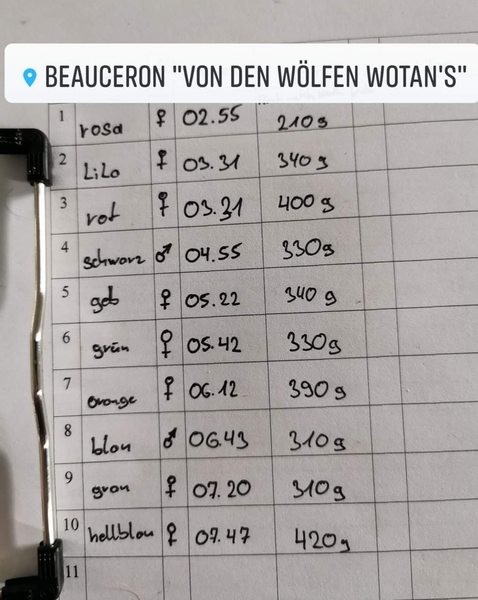 BEAUCERON "VON DEN WÖLFEN WOTAN'S"
1 rosa ♀ 02.55 210g
2 LiLa ♀ 03.31 340g
3 rot ♀ 03.31 400g
4 schwarz ♂ 04.55 330g
5 geb ♀ 05.22 340g
6 grün ♀ 05.42 330g
7 orange ♀ 06.12 390g
8 blau ♂ 06.43 310g
9 grau ♀ 07.20 310g
10 hellblau ♀ 07.47 420g
11